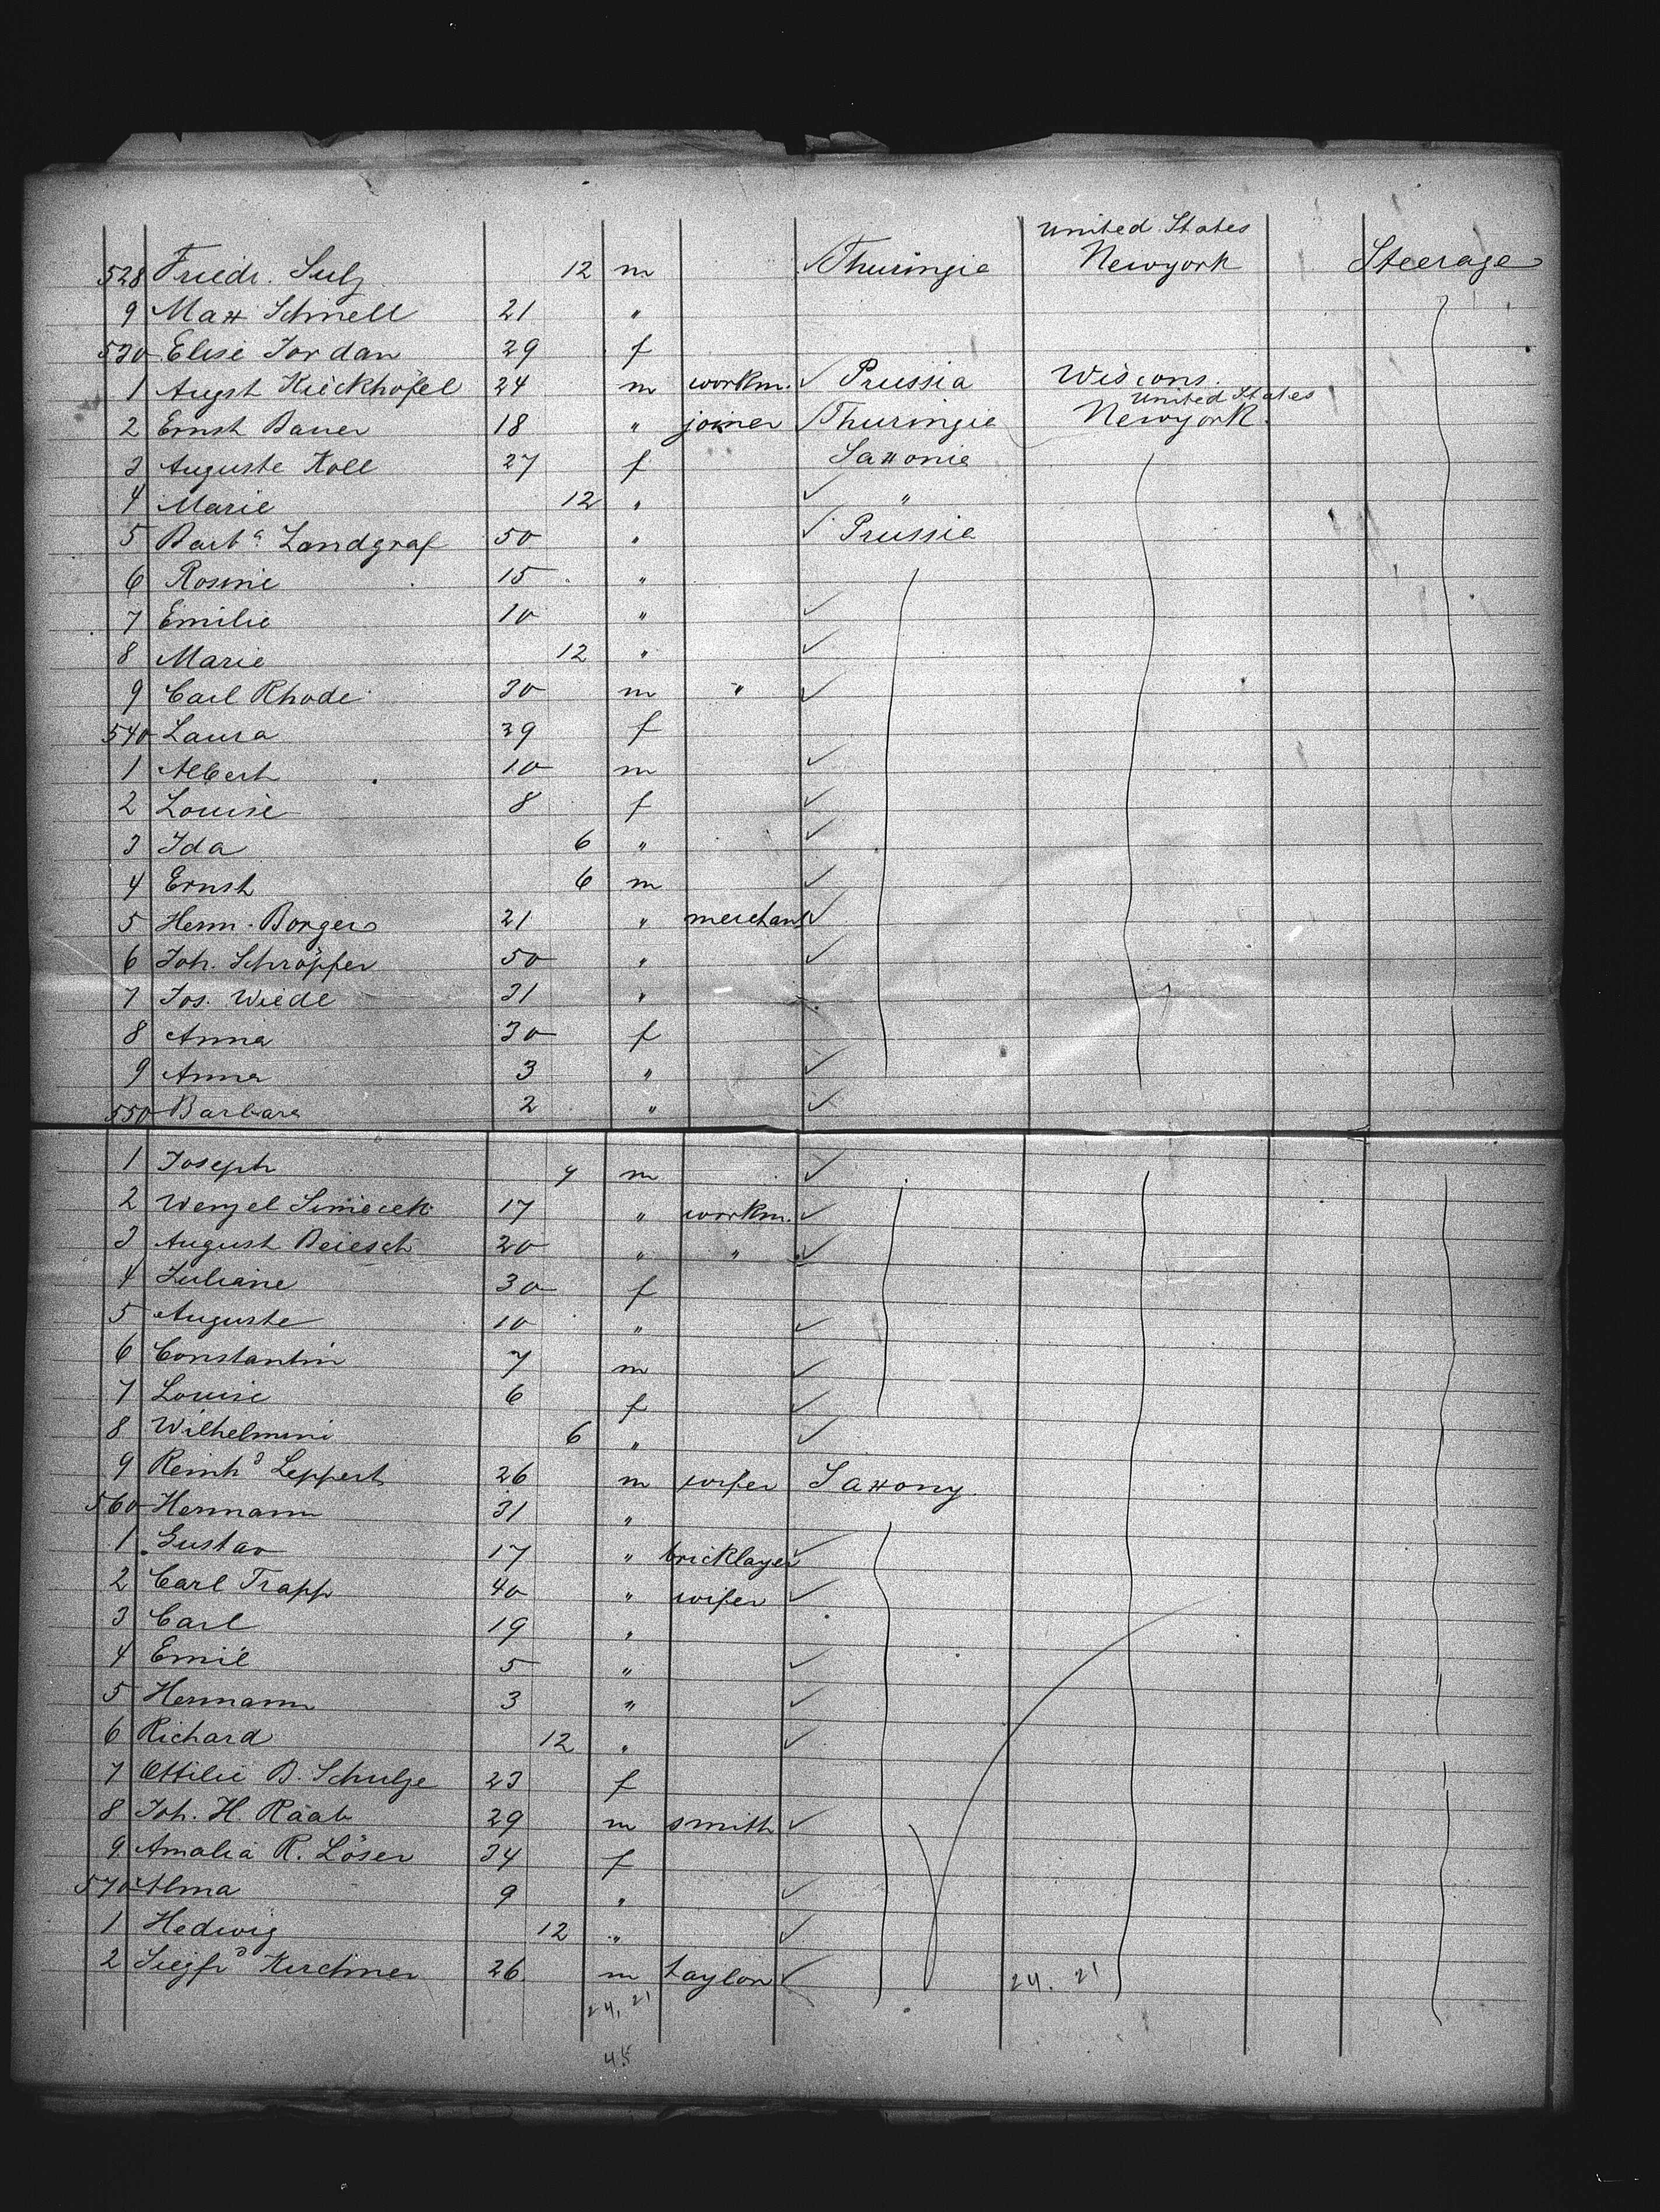 United States
528 Friedr. Sulz 12 m Thuringia Newyork Steerage
9 Max Schnell 21 "
530 Elise Jordan 29 f
1 Augst Kieckhöfel 24 m workm. Prussia Wiscons.
United States
2 Ernst Bauer 18 " joiner Thuringia Newyork.
3 Auguste Koll 27 f Saxonia
4 Marie 12 " "
5 Barba Landgraf 50 " Prussia
6 Rosine 15 "
7 Emilie 10 "
8 Marie 12 "
9 Carl Rhode 30 m "
540 Laura 39 f
1 Albert 10 m
2 Louise 8 f
3 Ida 6 "
4 Ernst 6 m
5 Herm. Borgers 21 " merchant
6 Joh. Schröpfer 50 "
7 Jos. Wiedl 31 "
8 Anna 30 f
9 Anna 3 "
550 Barbara 2 "
1 Joseph 9 m
2 Wenzel 17 " workm.
3 August 20 " "
4 Juliane 30 f
5 Auguste 10 "
6 Constantin 7 m
7 Louise 6 f
8 Wilhelmine 6 "
9 Reinhd Leppert 26 m Saxony
560 Hermann 31 "
1 Gustav 17 " bricklayer
2 Carl Trapp 40 " wifer
3 Carl 19 "
4 Emil 5 "
5 Hermann 3 "
6 Richard 12 "
7 Ottilie B. Schulze 23 f
8 Joh. H. Raab 29 m smith
9 Amalia R. Löser 34 f
570 Alma 9 "
1 Hedwig 12 "
2 Siegfd Kirchner 26 m taylor
24. 21 24. 21
45